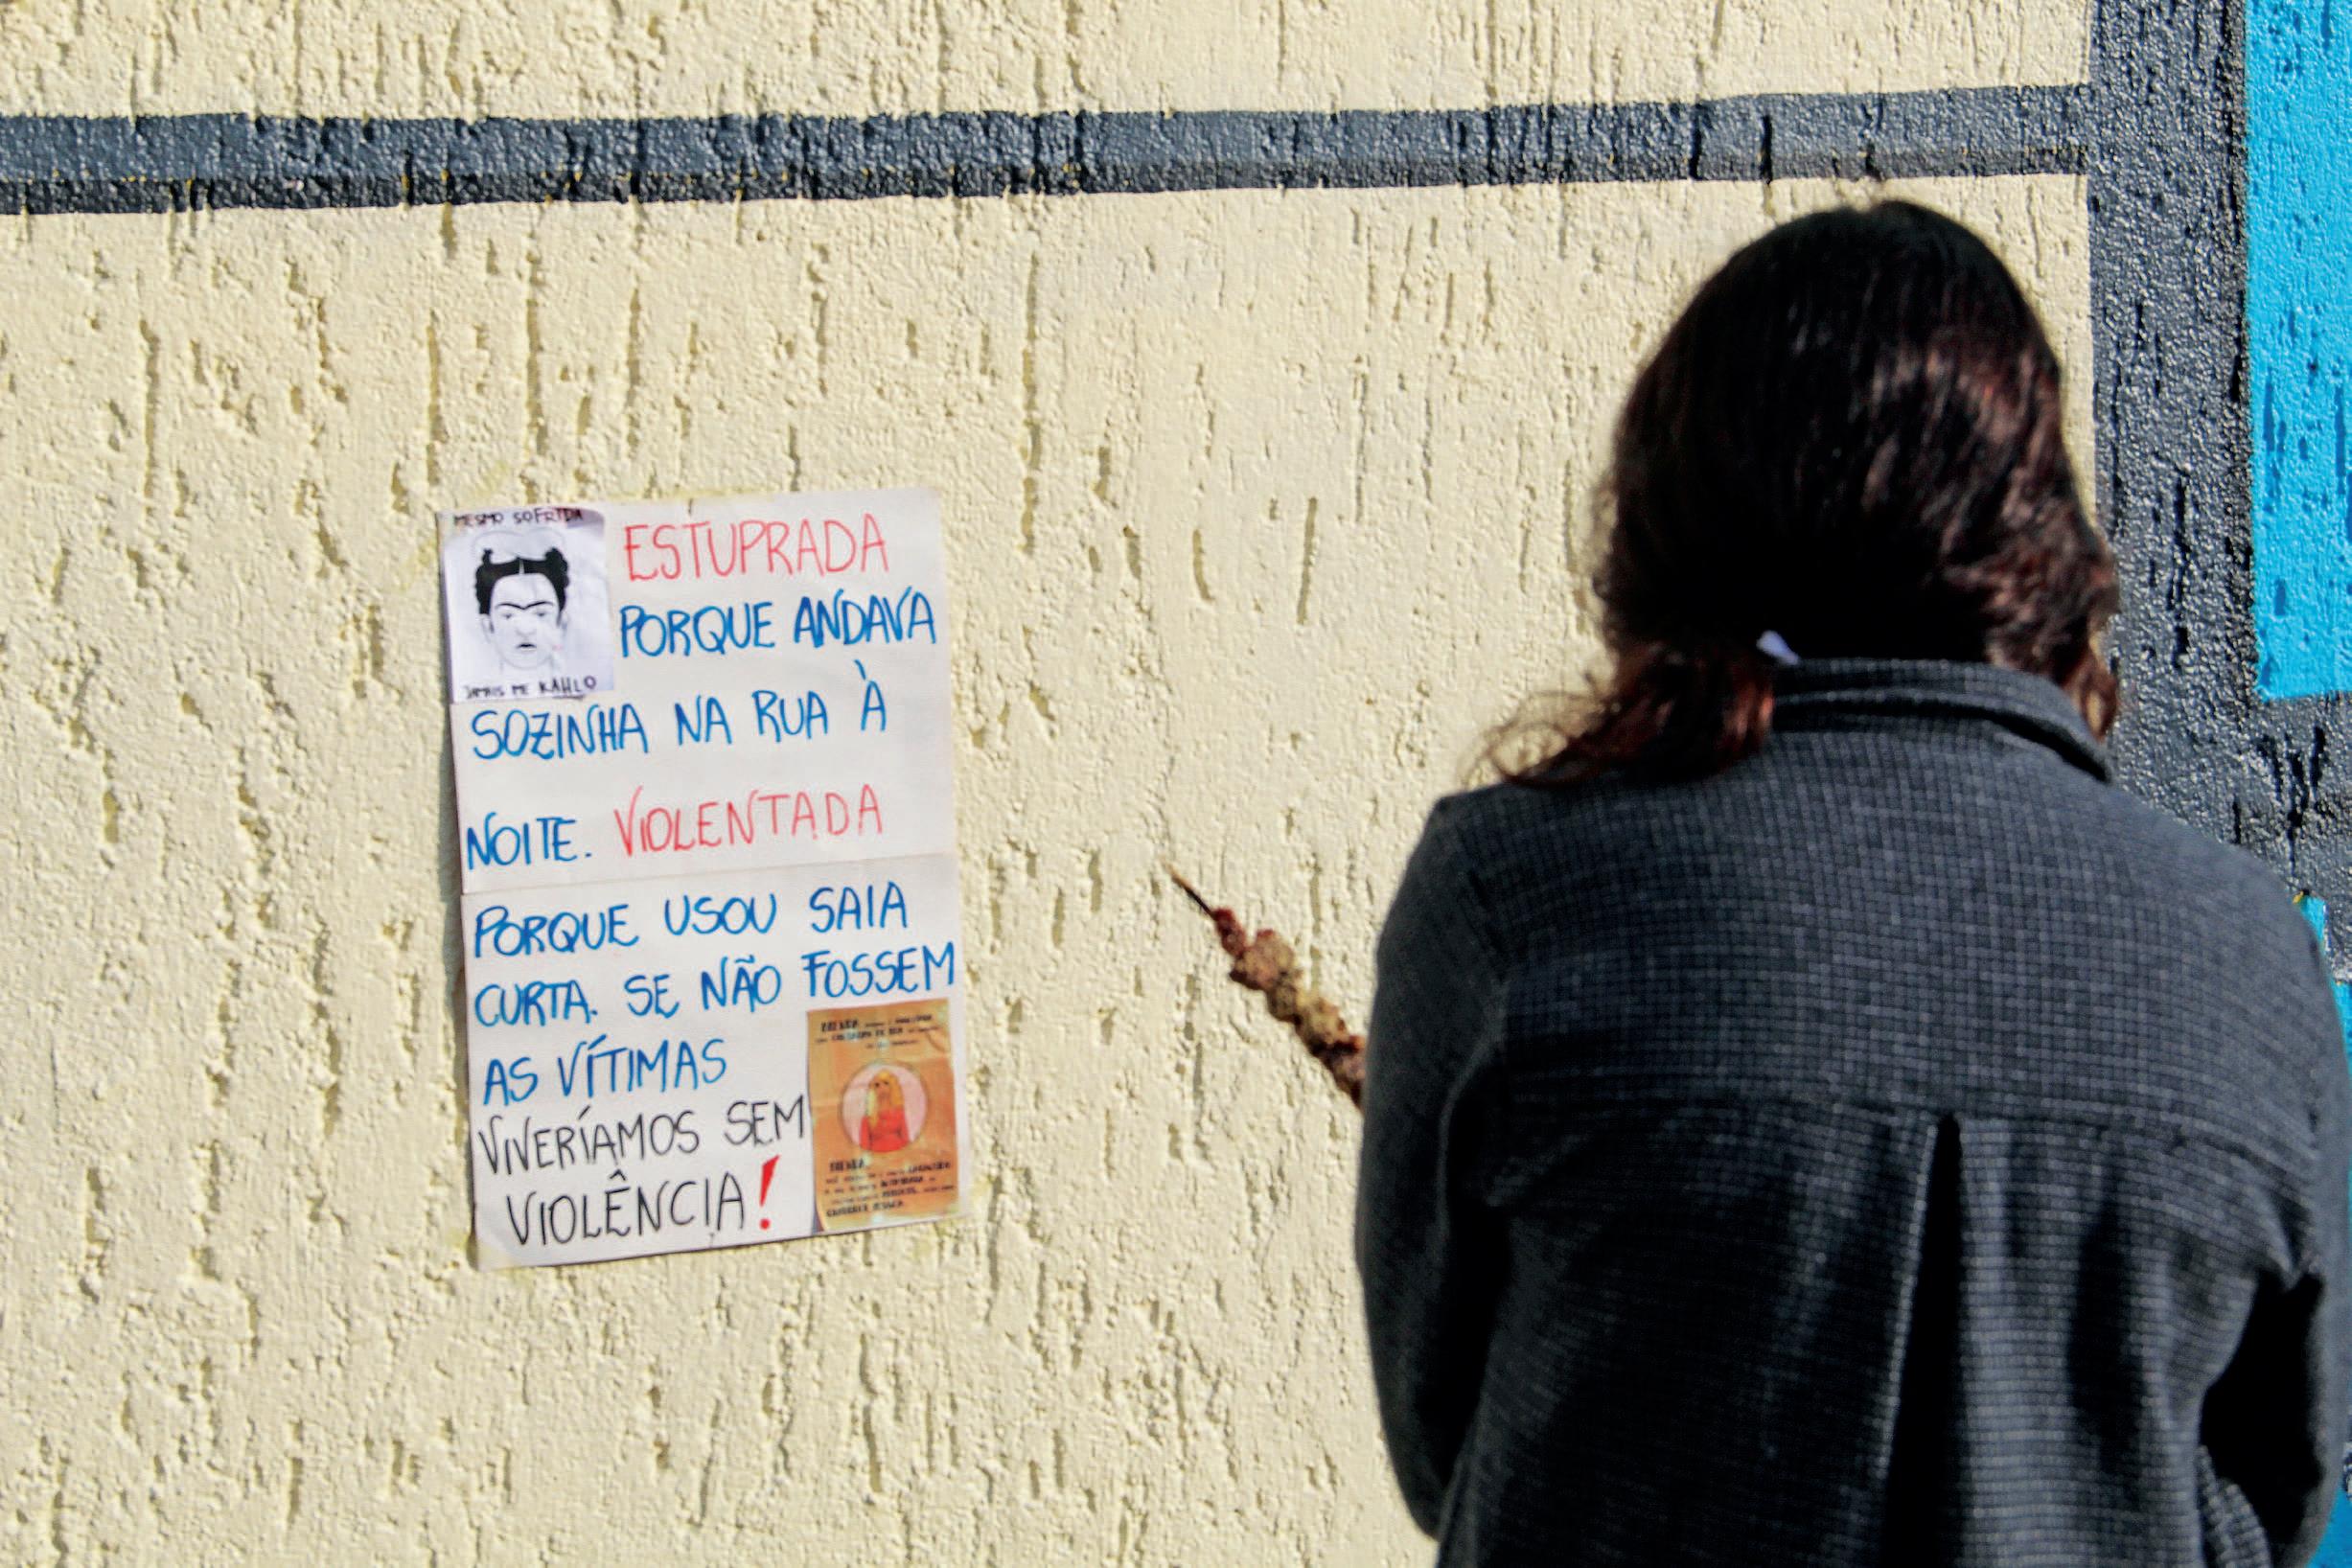 MESMO SOFRIDA
JAMAIS ME KAHLO
ESTUPRADA
PORQUE ANDAVA
SOZINHA NA RUA À
NOITE. VIOLENTADA
PORQUE USOU SAIA
CURTA. SE NÃO FOSSEM
AS VÍTIMAS
VIVERÍAMOS SEM
VIOLÊNCIA!